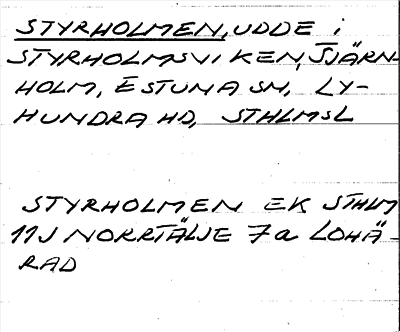 STYRHOLMEN, UDDE i
STYRHOLMSVIKEN, SJÄRN-
HOLM, ESTUNA SN, LY-
HUNDRA HD, STHLMSL
STYRHOLMEN EK STHLM
11J NORRTÄLJE 7a LOHÄ-
RAD